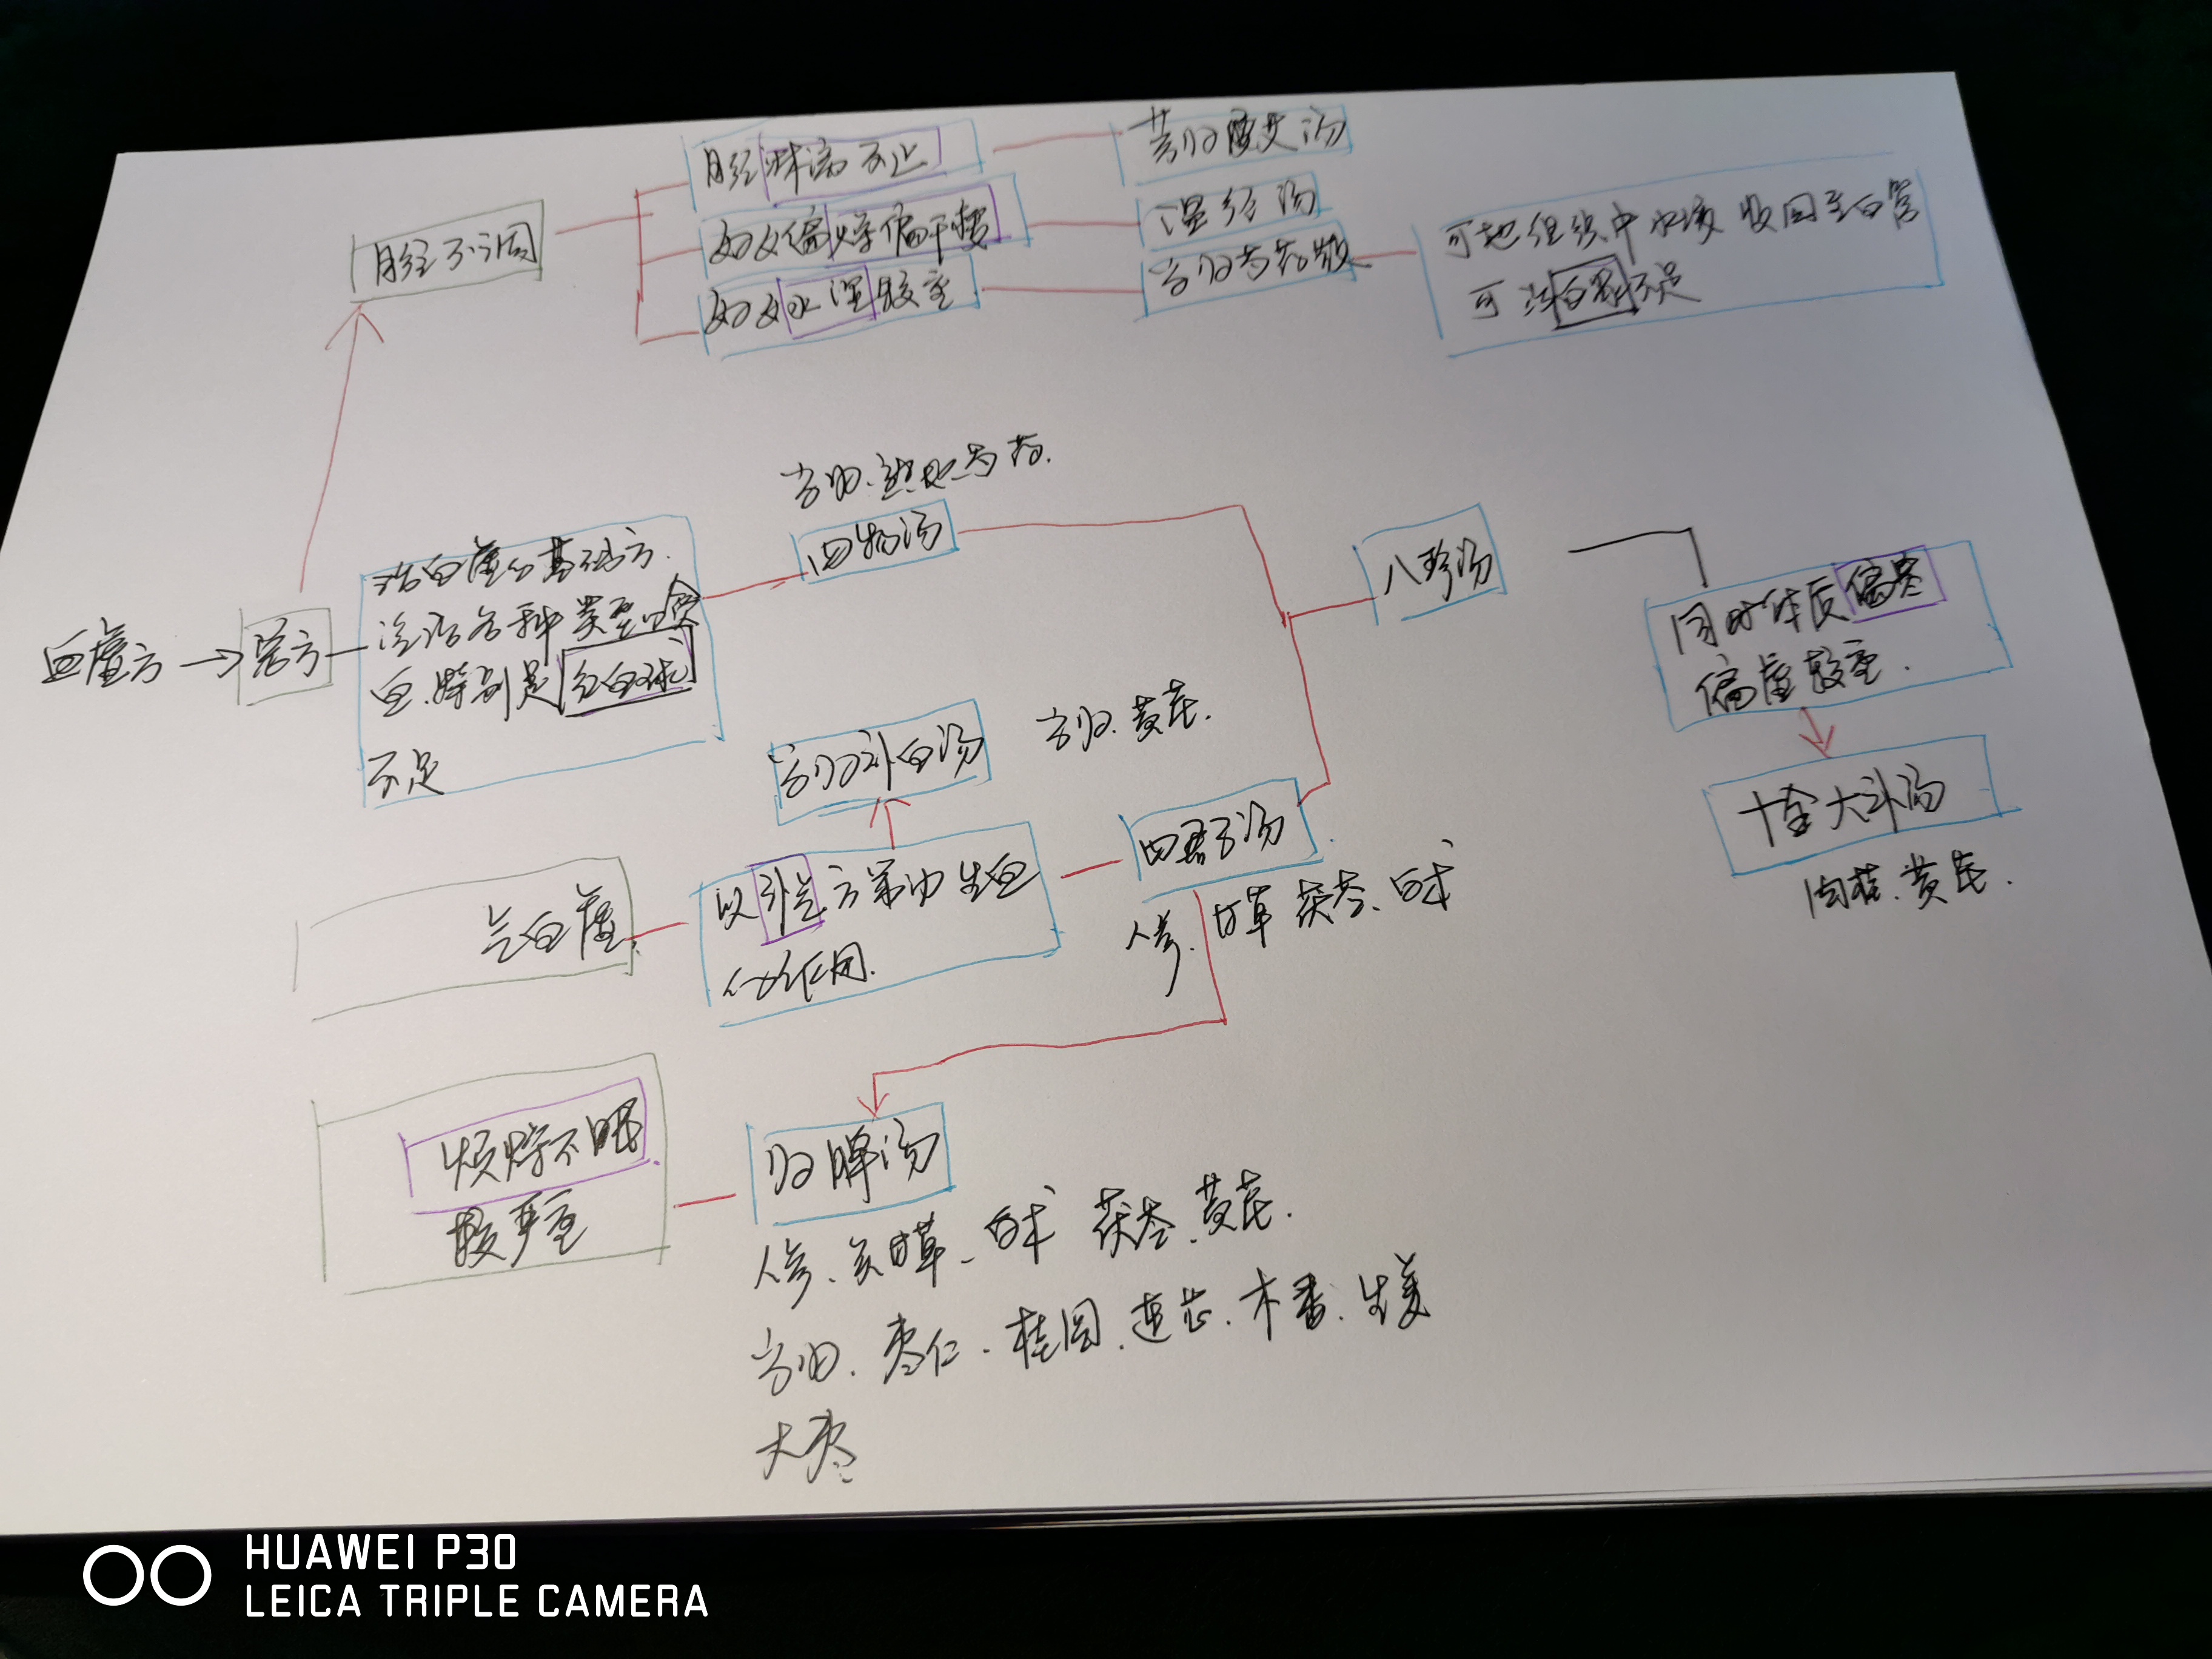 月经淋漓不止
芎归胶艾汤
月经不调
妇女偏燥偏干瘦
温经汤
妇女水湿较重
当归芍药散
可把组织中水液收回至血管
可治血容不足
当归、熟地、芍药.
四物汤
八珍汤
血虚方
治血虚的基础方.
治疗各种类型贫
血.特别是红血球
不足
同时体质偏寒
偏虚较重.
当归补血汤
当归.黄芪.
十全大补汤
肉桂.黄芪.
气血虚.
以补气方药为生血
的作用.
四君子汤
人参.甘草 茯苓、白术
烦燥不眠
较严重
归脾汤
人参、炙甘草、白术 茯苓、黄芪.
当归.枣仁.桂圆.远志.木香.生姜
大枣
HUAWEI P30
LEICA TRIPLE CAMERA